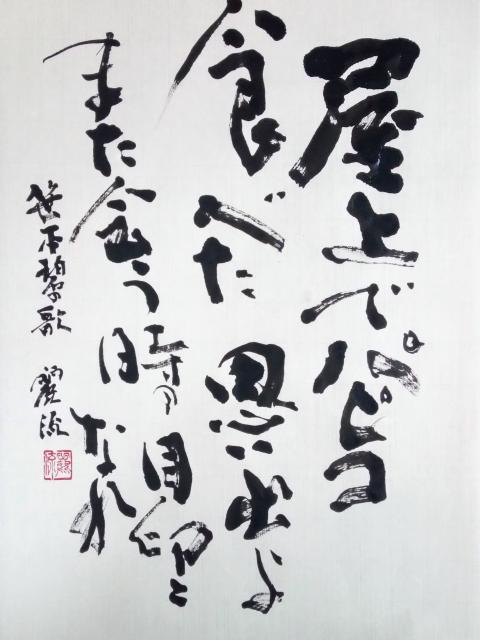 屋上でパピコ
食べた思い出よ
また会う時の目印と
なれ
笹本碧歌 麗流